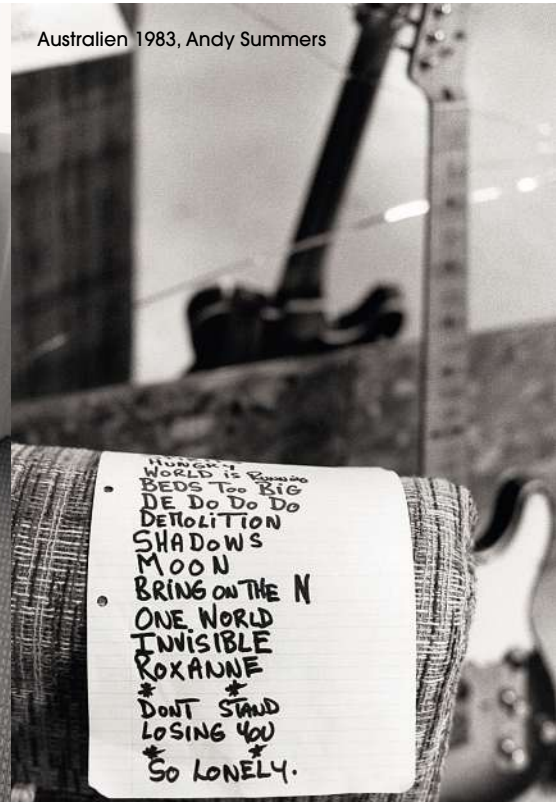 Australien 1983, Andy Summers
HUNGRY
WORLD is Running
BEDS Too BiG
DE Do Do Do
DEMOLITION
SHADOWS
MOON
BRING ON THE N
ONE WORLD
INVISIBLE
ROXANNE
* *
DONT STAND
LOSING YOU
* *
SO LONELY.